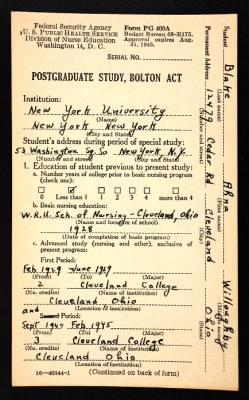 Federal Security Agency
U. S. PUBLIC HEALTH SERVICE
Division of Nurse Education
Washington 14, D. C.
Form PG 400A
Budget Bureau 68-R175.
Approval expires Aug.
31, 1945.
SERIAL NO.
POSTGRADUATE STUDY, BOLTON ACT
Institution:
New York University
(Name)
New York New York
(City and State)
Student's address during period of special study:
53 Washington Sq. So. New York, N.Y.
(Number and street) (City and State)
1. Education of student previous to present study:
a. Number years of college prior to basic nursing program
(check one):
0 Less than 1 1 2 3 4 more than 4
b. Basic nursing education:
W.R.U. Sch. of Nursing - Cleveland, Ohio
(Name and location of school)
1928
(Date of completion of basic program)
c. Advanced study (nursing and other, exclusive of
present program):
First Period:
Feb 1929 June 1929
(From) (To) (Major)
2 Cleveland College
(No. credits) (Name of institution)
Cleveland Ohio
(Location of institution)
and
Second Period:
Sept 1944 Feb 1945
(From) (To) (Major)
3 Cleveland College
(No. credits) (Name of institution)
Cleveland Ohio
(Location of institution)
16-40344-1 (Continued on back of form)
Student Blake Anna Willoughby
Permanent Address 12479 Cedar Rd Cleveland Ohio
(Number and street) (City and State)